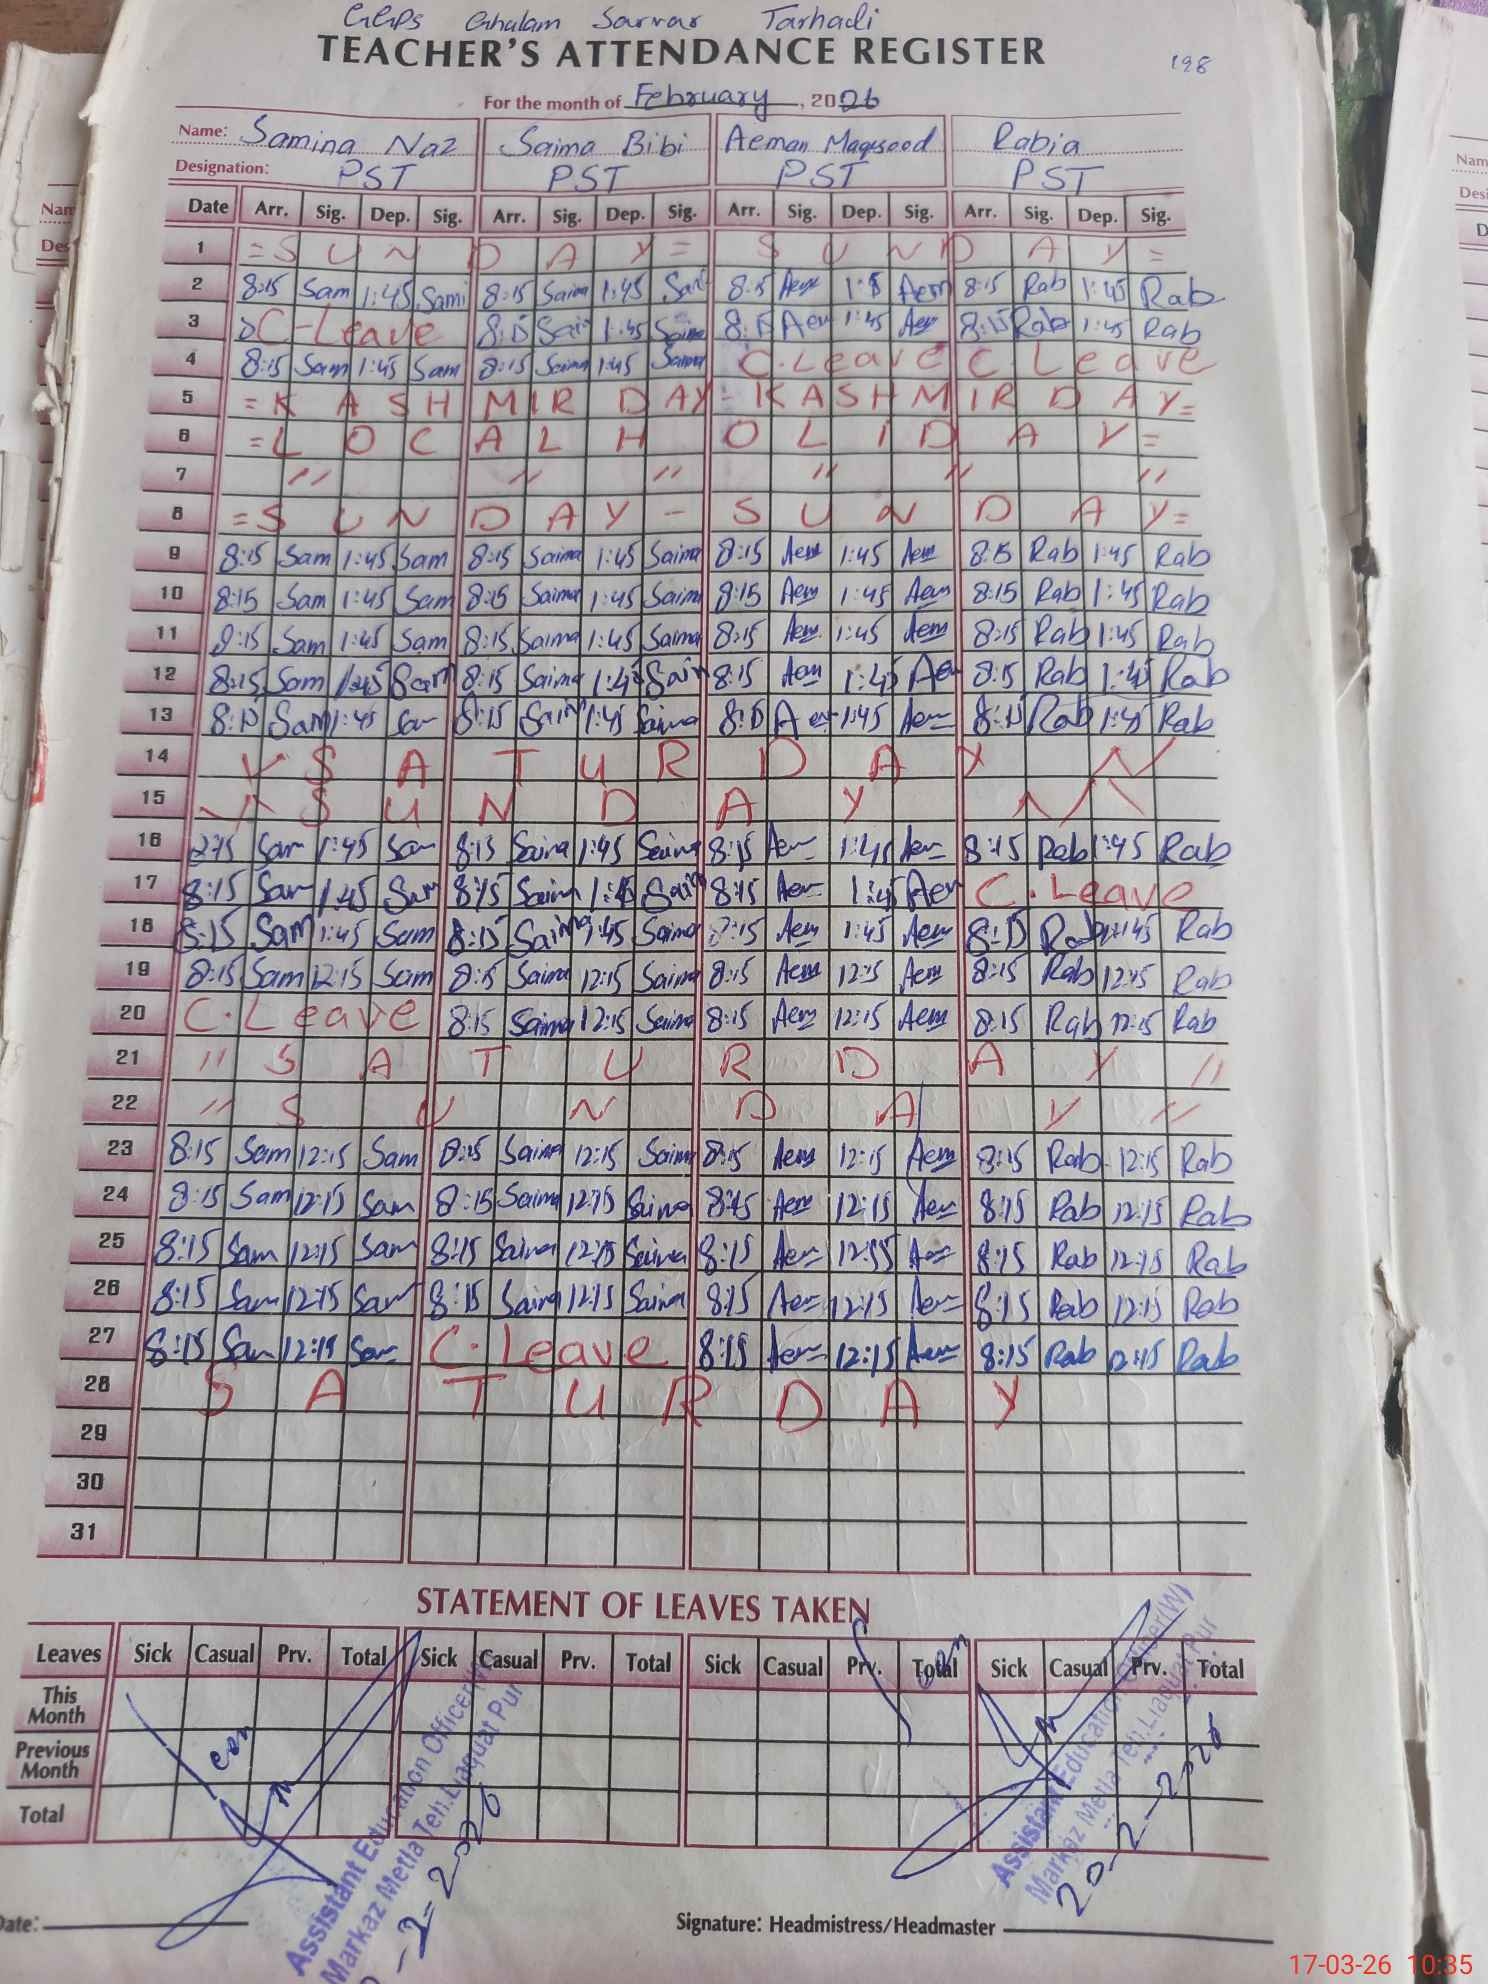 GGPS Ghulam Sarvar Tarhadi
TEACHER'S ATTENDANCE REGISTER
198
For the month of February, 2026
Name: Samina Naz Saima Bibi Aeman Maqsood Rabia
Designation: PST PST PST PST
Date Arr. Sig. Dep. Sig. Arr. Sig. Dep. Sig. Arr. Sig. Dep. Sig. Arr. Sig. Dep. Sig.
1 = S U N D A Y = S U N D A Y =
2 8:15 Sam 1:45 Sami 8:15 Saima 1:45 8:15 Aem Aem 8:15 Rab 1:45 Rab
3 C-Leave 8:15 Sai 1:45 Saima 8:15 Aem 1:45 Aem 8:15 Rab 1:45 Rab
4 8:15 Sam 1:45 Sam 8:15 Saima 1:45 Saima C.Leave C Leave
5 = K A S H M I R D A Y - K A S H M I R D A Y =
6 = L O C A L H O L I D A Y =
7 " " " " " "
8 = S U N D A Y - S U N D A Y =
9 8:15 Sam 1:45 Sam 8:15 Saima 1:45 Saima 8:15 Aem 1:45 Aem 8:15 Rab 1:45 Rab
10 8:15 Sam 1:45 Sam 8:15 Saima 1:45 Saima 8:15 Aem 1:45 Aem 8:15 Rab 1:45 Rab
11 8:15 Sam 1:45 Sam 8:15 Saima 1:45 Saima 8:15 Aem 1:45 Aem 8:15 Rab 1:45 Rab
12 8:15 Sam 1:45 Sam 8:15 Saima 1:45 Saim 8:15 Aem 1:45 Aem 8:15 Rab 1:45 Rab
13 8:15 Sam 1:45 Sam 8:15 Saim 1:45 Saima 8:15 Aem 1:45 Aem 8:15 Rab 1:45 Rab
14 S A T U R D A Y
15 S U N D A Y
16 Sam 1:45 Sam 8:15 Saima 1:45 Saima 8:15 Aem 1:45 Aem 8:15 Rab 1:45 Rab
17 8:15 Sam 1:45 Sam 8:15 Saima 1:45 Saim 8:15 Aem 1:45 Aem C.Leave
18 8:15 Sam 1:45 Sam 8:15 Saima 1:45 Saima 8:15 Aem 1:45 Aem 8:15 Rab 1:45 Rab
19 8:15 Sam 12:15 Sam 8:15 Saima 12:15 Saima 8:15 Aem 12:15 Aem 8:15 Rab 12:15 Rab
20 C.Leave 8:15 Saima 12:15 Saima 8:15 Aem 12:15 Aem 8:15 Rab 12:15 Rab
21 " S A T U R D A Y "
22 " S U N D A Y "
23 8:15 Sam 12:15 Sam 8:15 Saima 12:15 Saima 8:15 Aem 12:15 Aem 8:15 Rab 12:15 Rab
24 8:15 Sam 12:15 Sam 8:15 Saima 12:15 Saima 8:15 Aem 12:15 Aem 8:15 Rab 12:15 Rab
25 8:15 Sam 12:15 Sam 8:15 Saima 12:15 Saima 8:15 Aem Aem 8:15 Rab 12:15 Rab
26 8:15 Sam 12:15 Sam 8:15 Saima 12:15 Saima 8:15 Aem 12:15 Aem 8:15 Rab 12:15 Rab
27 8:15 Sam 12:15 Sam C.Leave 8:15 Aem 12:15 Aem 8:15 Rab 12:15 Rab
28 S A T U R D A Y
29
30
31
STATEMENT OF LEAVES TAKEN
Leaves Sick Casual Prv. Total Sick Casual Prv. Total Sick Casual Prv. Total Sick Casual Prv. Total
This Month
Previous Month
Total
Assistant Education Officer(W)
Markaz Metla Teh. Liaquat Pur
-2-2026
Assistant Education Officer(W)
Markaz Metla Teh. Liaquat Pur
20-2-2026
Date:
Signature: Headmistress/Headmaster
17-03-26 10:35